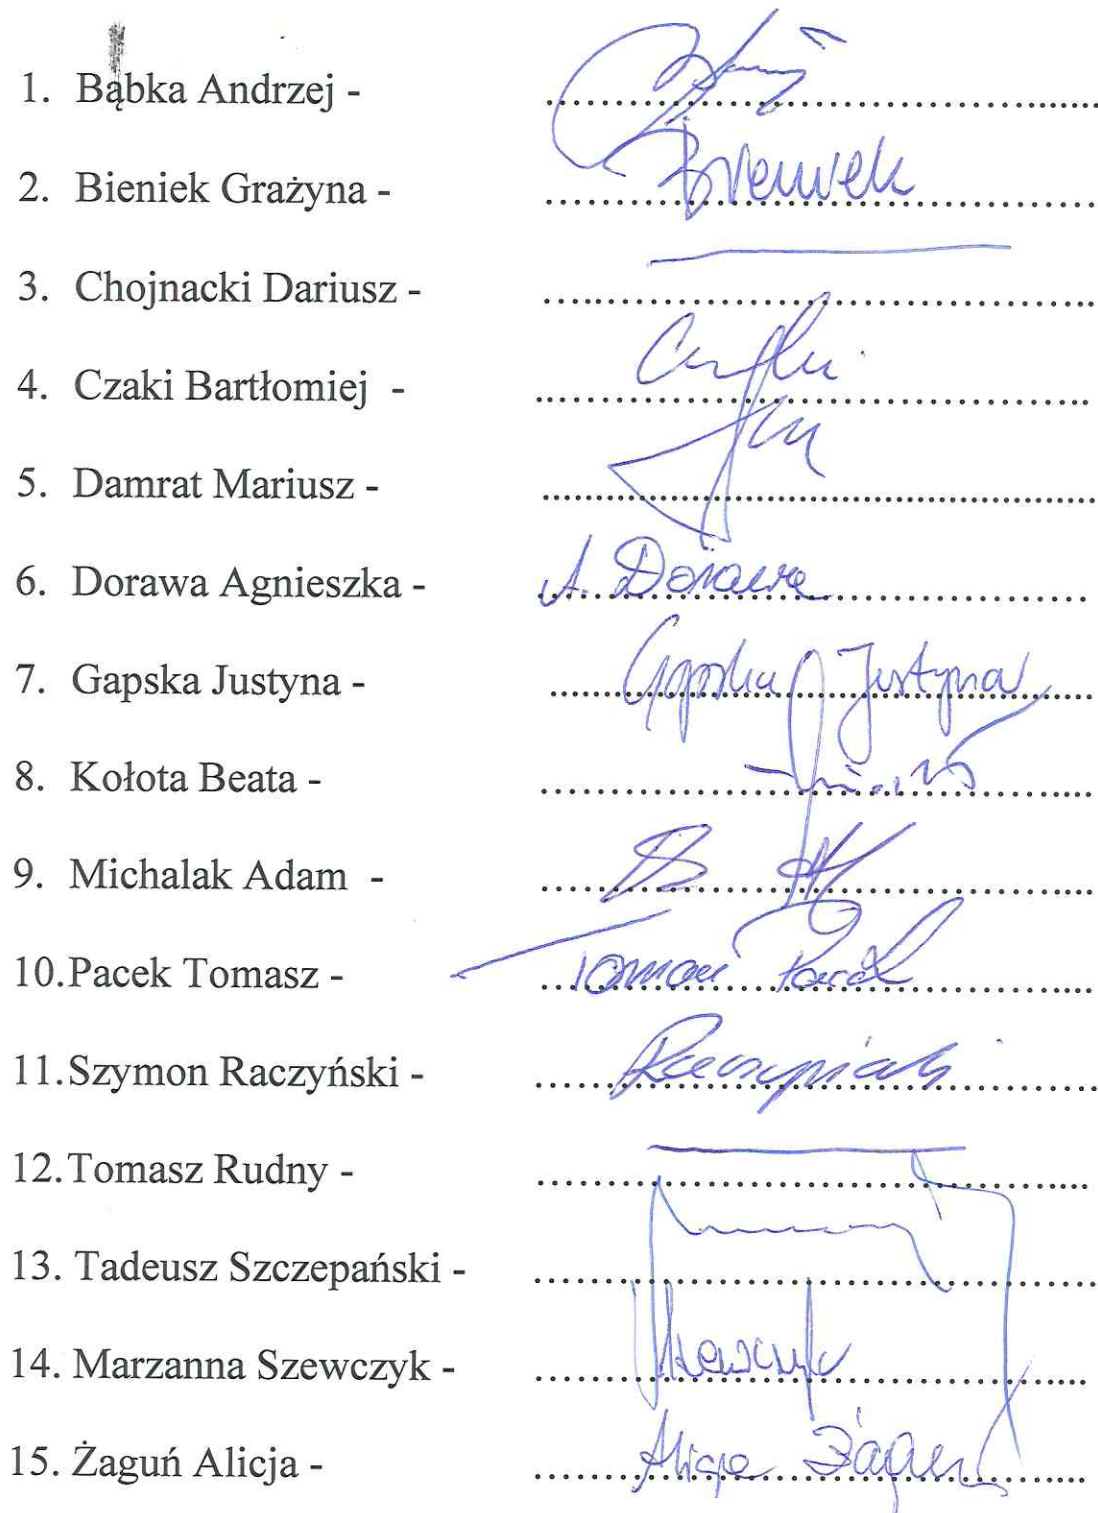 1. Bąbka Andrzej - ........................................
2. Bieniek Grażyna - ........................................ Bieniek
3. Chojnacki Dariusz - ........................................
4. Czaki Bartłomiej - ........................................
5. Damrat Mariusz - ........................................
6. Dorawa Agnieszka - ........................................ A. Dorawa
7. Gapska Justyna - ........................................ Gapska Justyna
8. Kołota Beata - ........................................
9. Michalak Adam - ........................................
10.Pacek Tomasz - ........................................ Tomasz Pacek
11.Szymon Raczyński - ........................................ Raczyński
12.Tomasz Rudny - ........................................
13. Tadeusz Szczepański - ........................................
14. Marzanna Szewczyk - ........................................ Szewczyk
15. Żaguń Alicja - ........................................ Alicja Żaguń